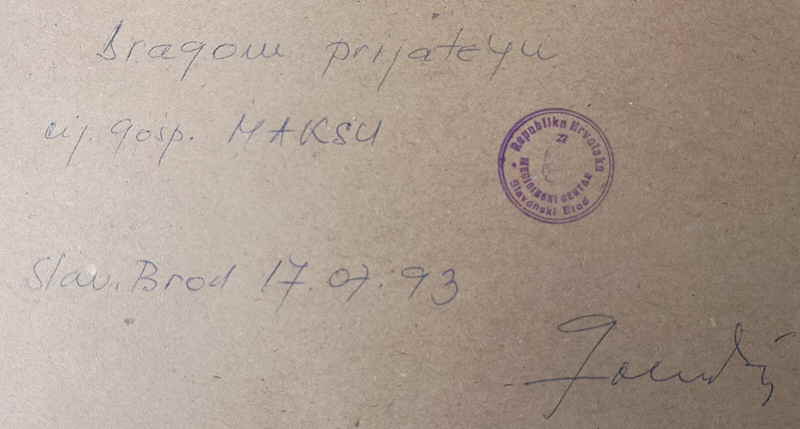 Dragom prijatelju
cij. gosp. MAKSU
Republika Hrvatska
MEDICINSKI CENTAR
Slavonski Brod
Slav. Brod 17.07.93